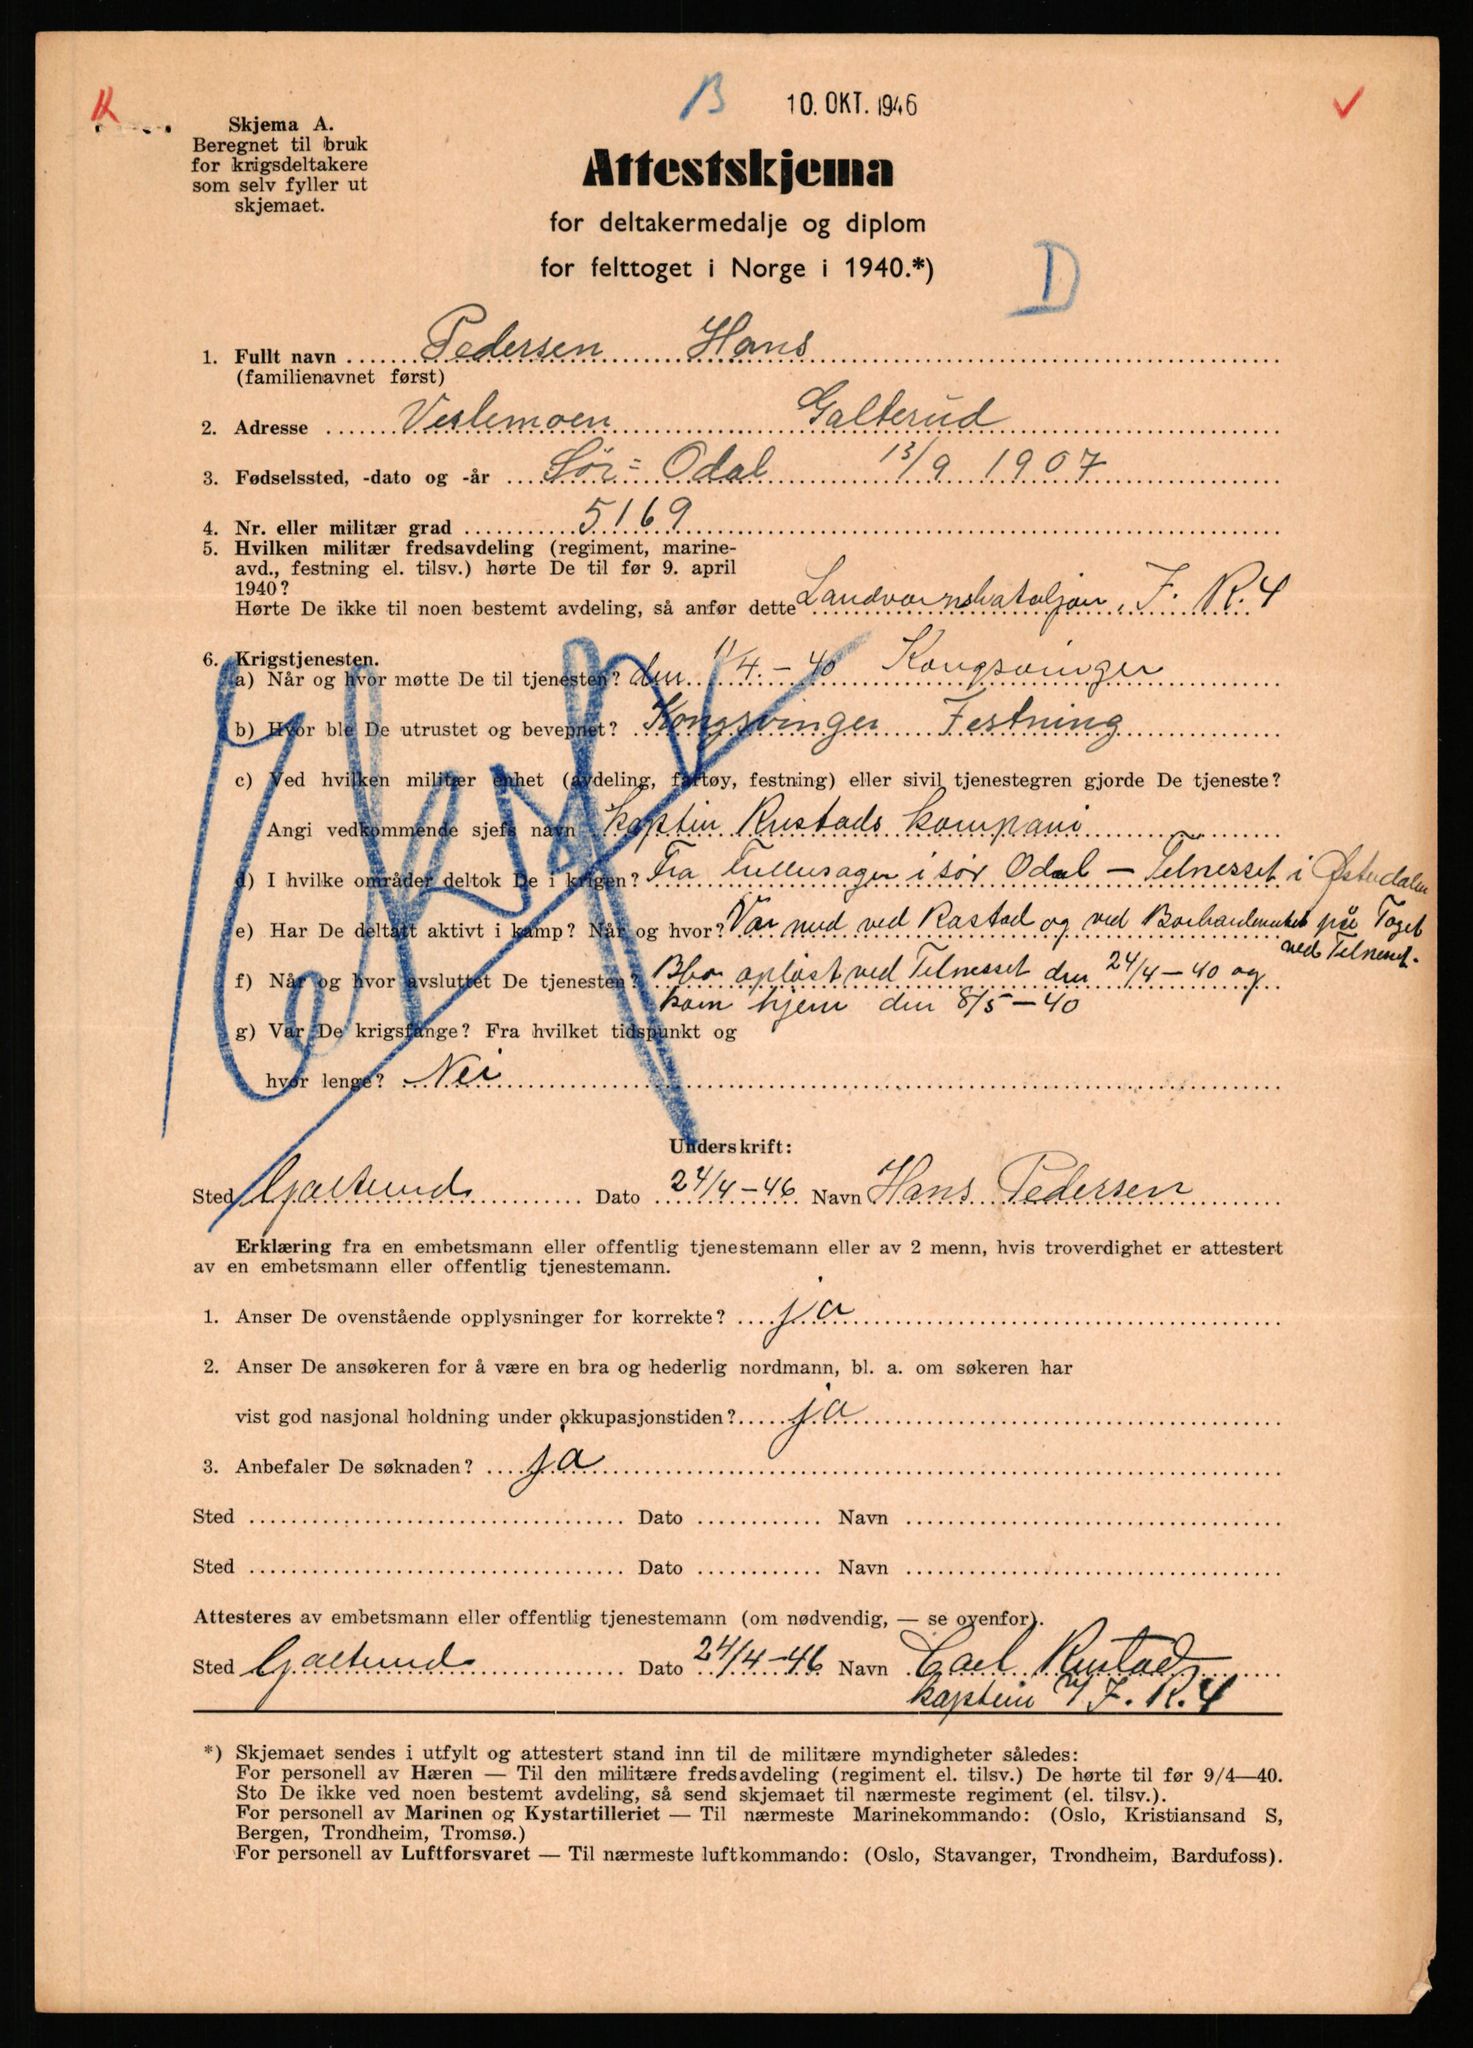 B 10. OKT. 1946
Skjema A.
Beregnet til bruk
for krigsdeltakere
som selv fyller ut
skjemaet.
Attestskjema
for deltakermedalje og diplom
for felttoget i Norge i 1940.*)
D
1. Fullt navn Pedersen Hans
(familienavnet først)
2. Adresse Veslemoen Galterud
3. Fødselssted, -dato og -år Sør-Odal 13/9 1907
4. Nr. eller militær grad 5169
5. Hvilken militær fredsavdeling (regiment, marine-
avd., festning el. tilsv.) hørte De til før 9. april
1940?
Hørte De ikke til noen bestemt avdeling, så anfør dette Landvernsbataljon, I. R. 4
6. Krigstjenesten.
a) Når og hvor møtte De til tjenesten? den 11/4-40 Kongsvinger
b) Hvor ble De utrustet og bevepnet? Kongsvinger Festning
c) Ved hvilken militær enhet (avdeling, fartøy, festning) eller sivil tjenestegren gjorde De tjeneste?
Angi vedkommende sjefs navn Kaptein Rustads kompani
d) I hvilke områder deltok De i krigen? Fra i sør Odal — Telnesset i Østerdalen
e) Har De deltatt aktivt i kamp? Når og hvor? Var med ved Rastad og ved på Toget
ved Telneset.
f) Når og hvor avsluttet De tjenesten? opløst ved Telnesset den 24/4-40 og
kom hjem den 8/5-40
g) Var De krigsfange? Fra hvilket tidspunkt og
hvor lenge? Nei
Underskrift:
Sted Galterud Dato 24/4-46 Navn Hans Pedersen
Erklæring fra en embetsmann eller offentlig tjenestemann eller av 2 menn, hvis troverdighet er attestert
av en embetsmann eller offentlig tjenestemann.
1. Anser De ovenstående opplysninger for korrekte? ja
2. Anser De ansøkeren for å være en bra og hederlig nordmann, bl. a. om søkeren har
vist god nasjonal holdning under okkupasjonstiden? ja
3. Anbefaler De søknaden? ja
Sted Dato Navn
Sted Dato Navn
Attesteres av embetsmann eller offentlig tjenestemann (om nødvendig, — se ovenfor).
Sted Galterud Dato 24/4-46 Navn Carl Rustad
kaptein I. R. 4
*) Skjemaet sendes i utfylt og attestert stand inn til de militære myndigheter således:
For personell av Hæren — Til den militære fredsavdeling (regiment el. tilsv.) De hørte til før 9/4—40.
Sto De ikke ved noen bestemt avdeling, så send skjemaet til nærmeste regiment (el. tilsv.).
For personell av Marinen og Kystartilleriet — Til nærmeste Marinekommando: (Oslo, Kristiansand S,
Bergen, Trondheim, Tromsø.)
For personell av Luftforsvaret — Til nærmeste luftkommando: (Oslo, Stavanger, Trondheim, Bardufoss).